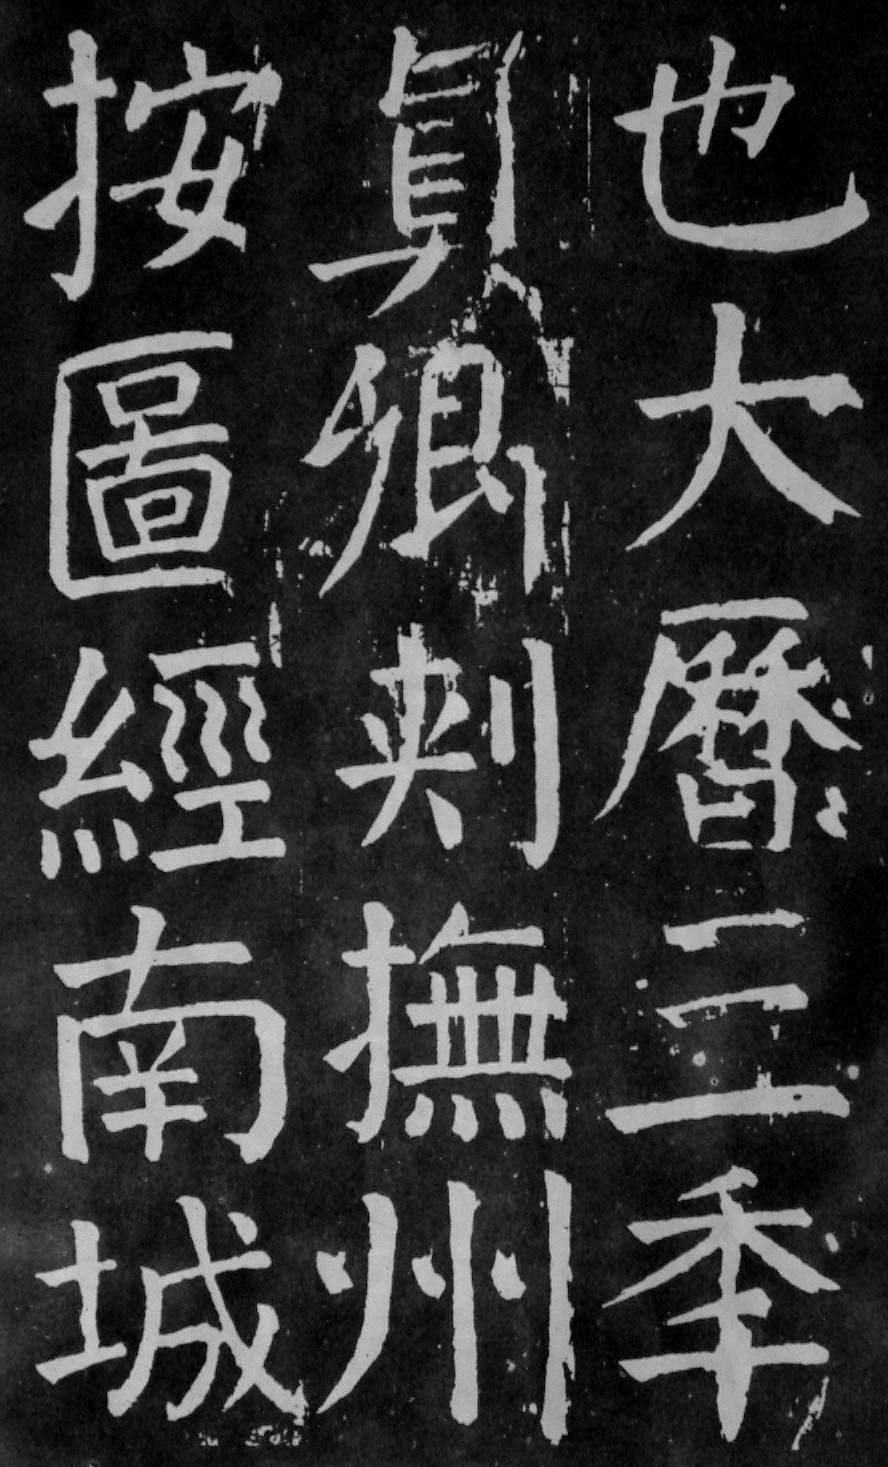 也大曆三秊
真卿刺撫州
按圖經南城